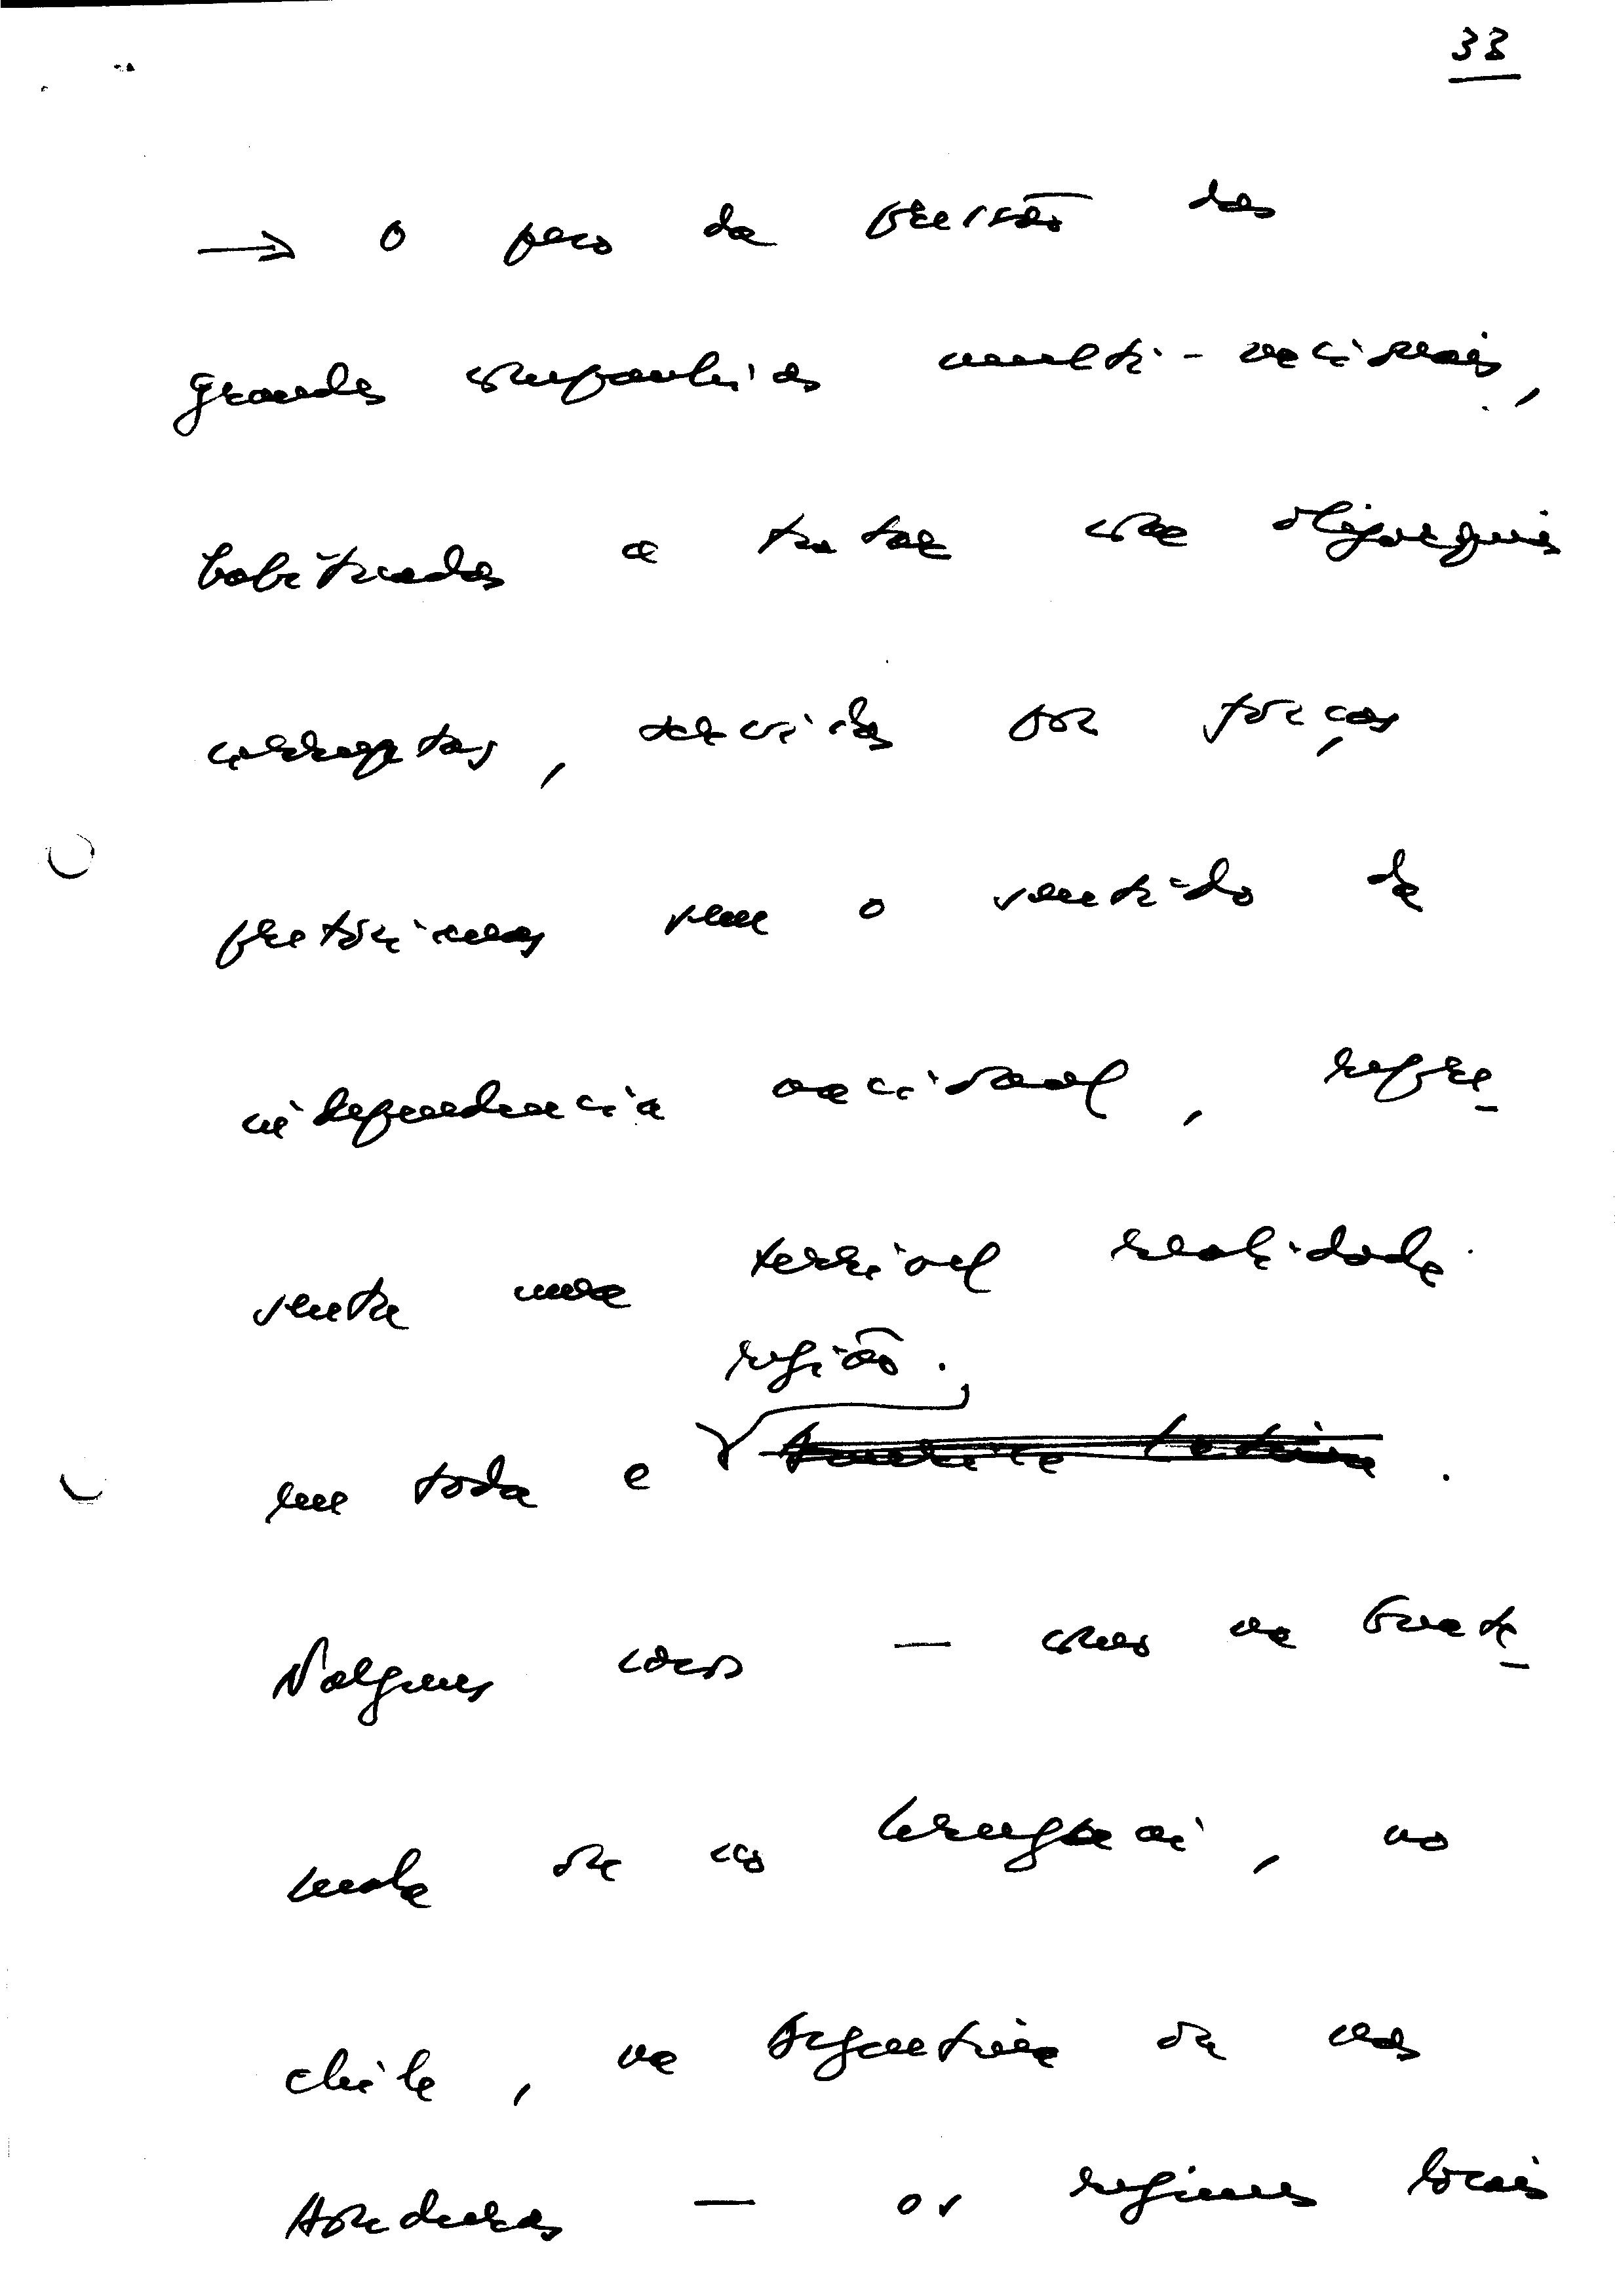 33
→ O peso da pressão das
grandes companhias multi-nacionais,
habituadas a tratar com oligarquias
corruptas, servidas por forças
pretorianas sem o sentido da
independencia nacional, repre_
senta uma terrivel realidade
região.
em toda a
Nalguns casos — como na Guate_
mala ou no Uruguai, no
Chile, na Argentina ou nas
Honduras — os regimes locais